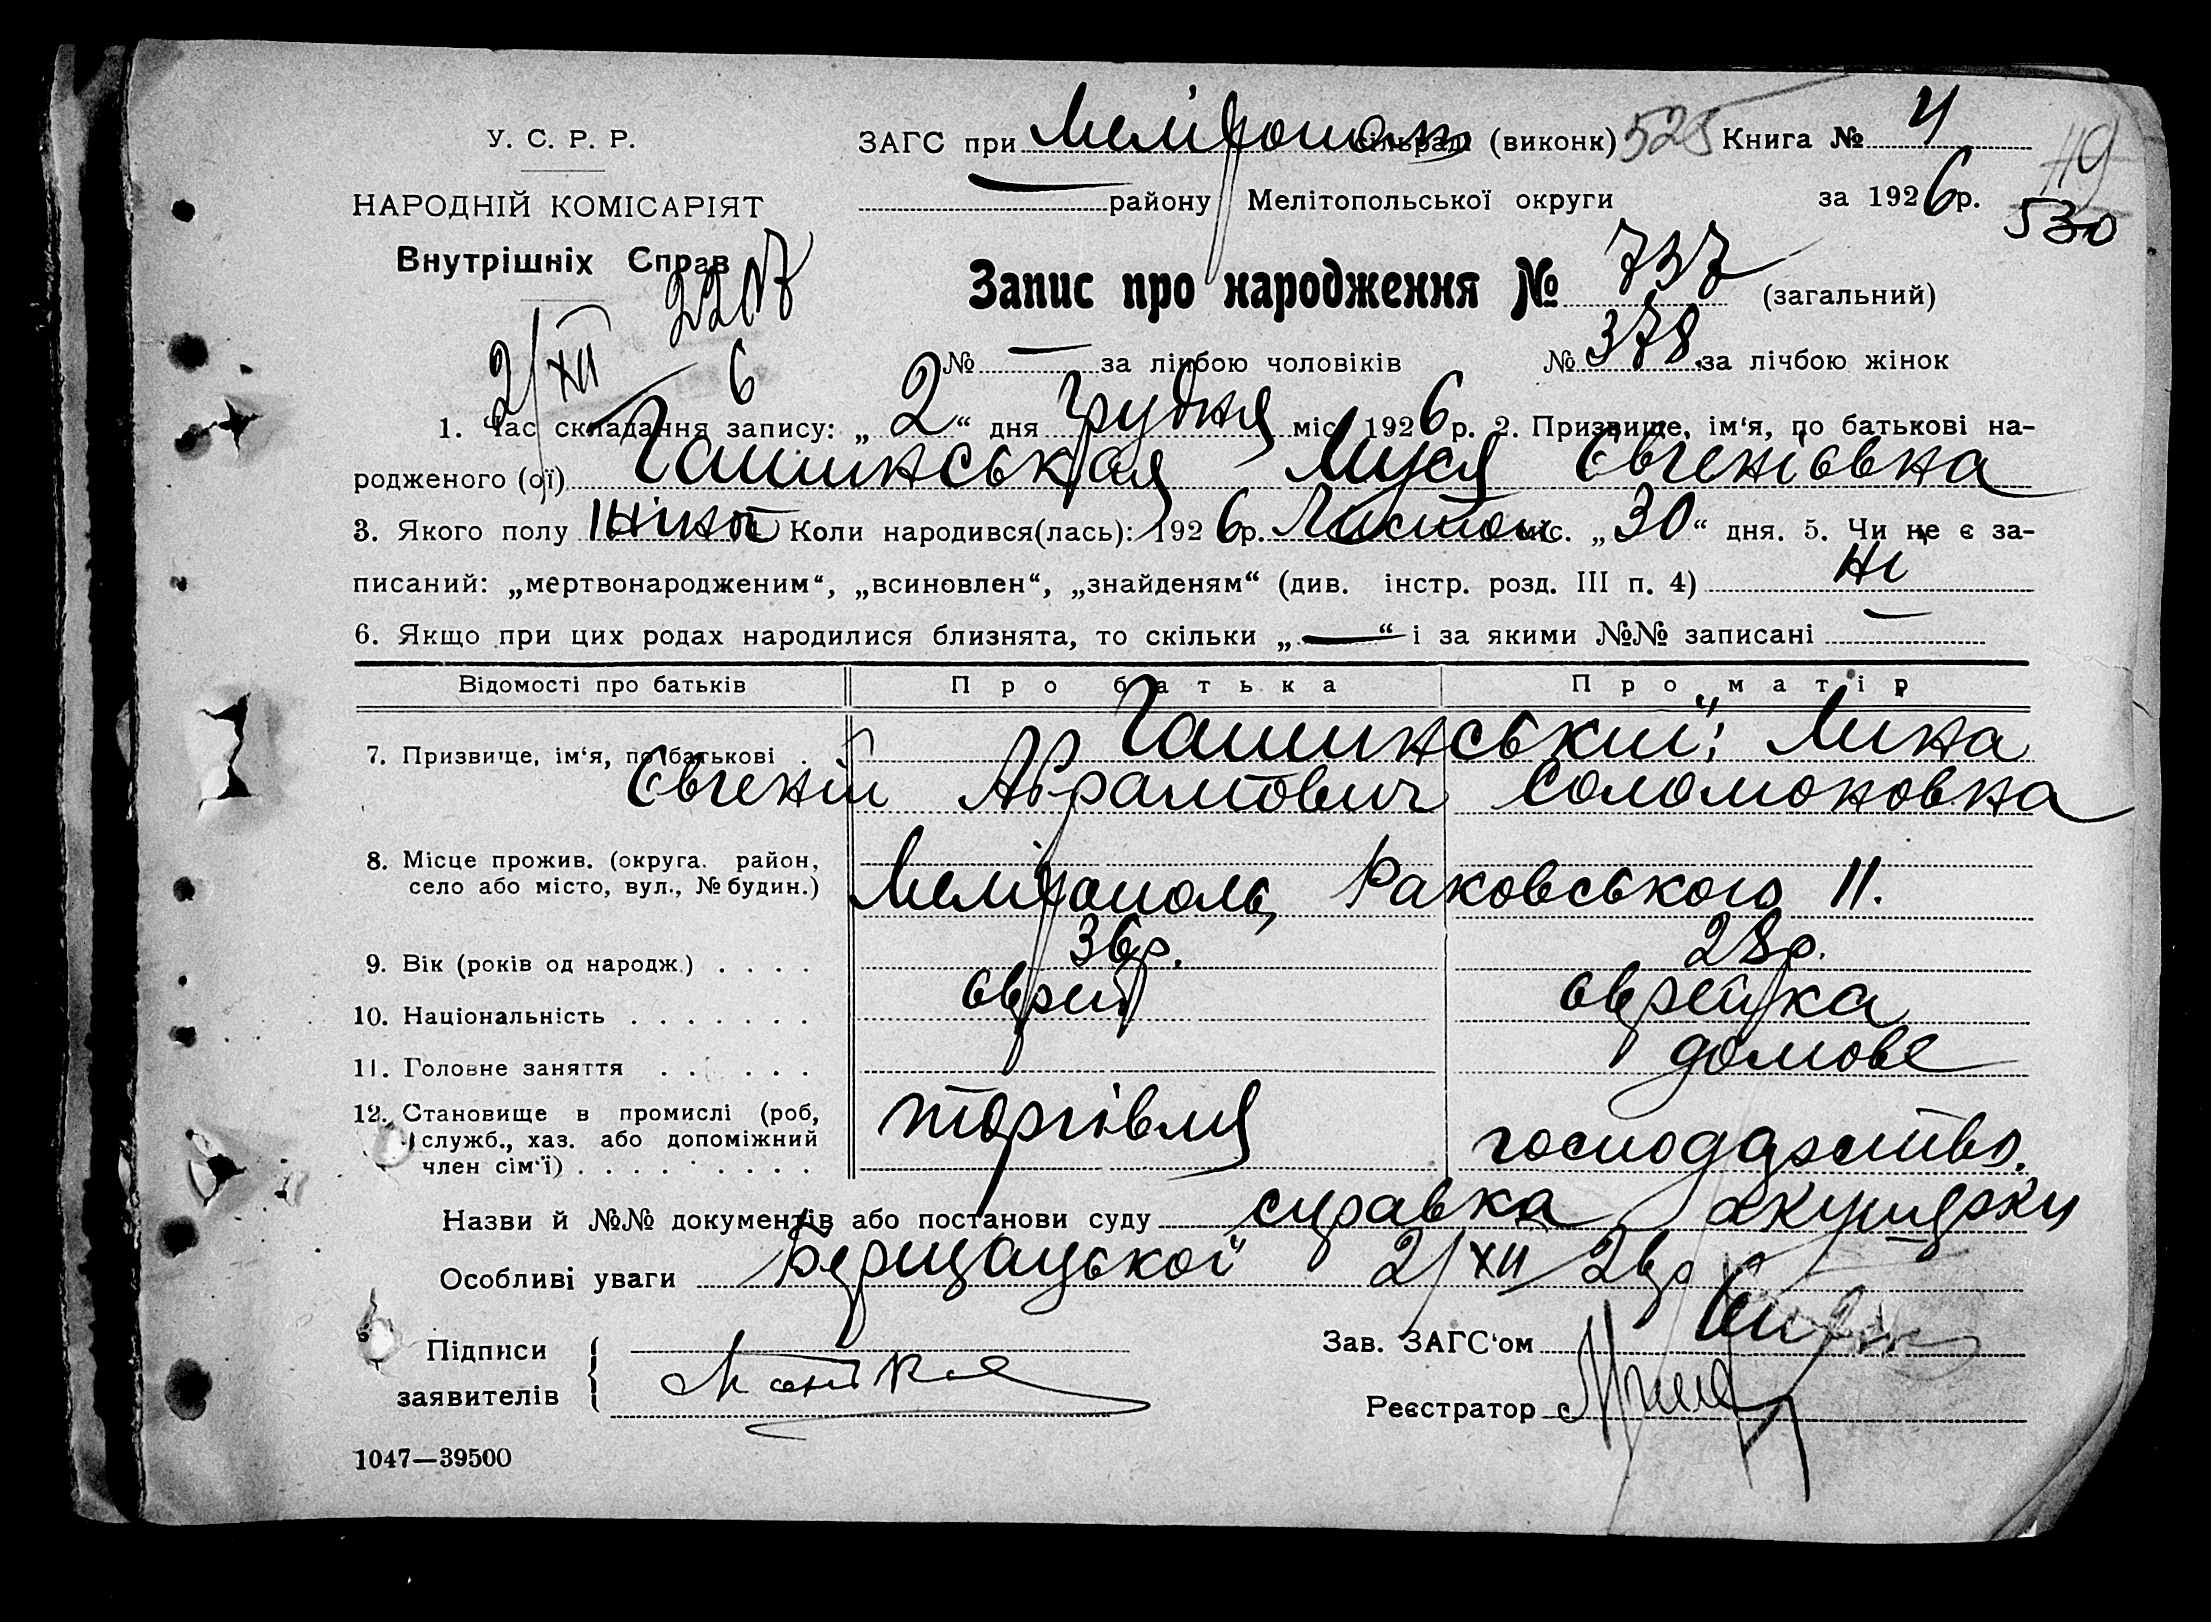 У. С. Р. Р.
НАРОДНІЙ КОМІСАРІЯТ
Внутрішніх Справ
2207
2/XII 6
ЗАГС при Мелітополь сільраді (виконк) 525 Книга № 4
119
— району Мелітопольської округи за 1926 р.
530
Запис про народження № 737 (загальний)
№ — за лічбою чоловіків № 378 за лічбою жінок
1. Час складання запису: „ 2 “ дня Грудня міс. 1926 р. 2. Призвище, ім‘я, по батькові на-
родженого (ої) Гашинськая Муся Євгенієвна
3. Якого полу жіноч Коли народився(лась): 1926 р. Листоп міс. „ 30 “ дня. 5. Чи не є за-
писаний: „мертвонародженим“, „всиновлен“, „знайденям“ (див. інстр. розд. III п. 4) ні
6. Якщо при цих родах народилися близнята, то скільки „ — “ і за якими №№ записані —
Відомості про батьків Про батька Про матір
7. Призвище, ім‘я, по батькові . Гашинський; Лина
Євгеній Абрамович Соломоновна
8. Місце прожив. (округа, район,
село або місто, вул., № будин.) Мелітополь, Раковського 11.
9. Вік (років од народж.) . . . . 36 р. 28 р.
10. Національність . . . . . . . єврей єврейка
11. Головне заняття . . . . . . домове
12. Становище в промислі (роб,
служб., хаз. або допоміжний
член сім‘ї) . . . . . . . . . торгівля господарство.
Назви й №№ документів або постанови суду справка акушерки
Особливі уваги 2/XII 26 р
Підписи
заявителів
Зав. ЗАГС‘ом
Реєстратор
1047—39500